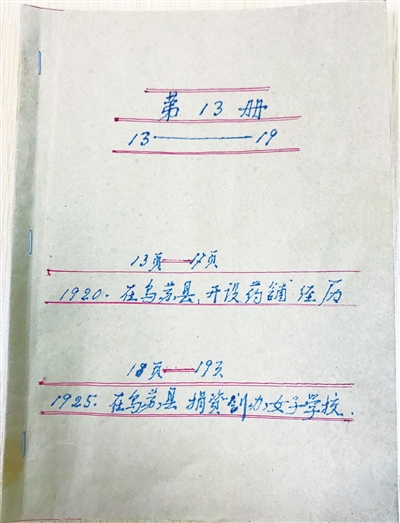 第13册
13——19
13頁——17页
1920.在乌苏县,开设药鋪经历
18頁——19页
1925.在乌苏县捐资创办女子学校.